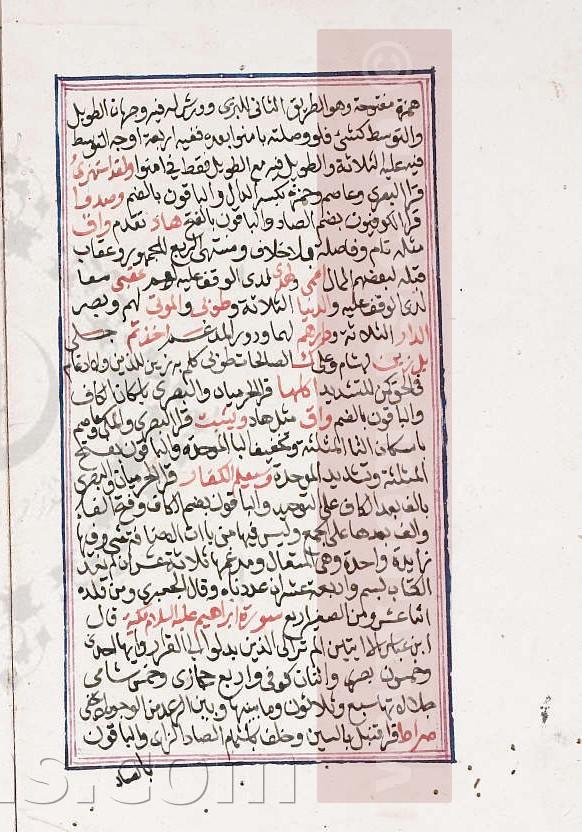 همزة مفتوحة وهو الطريق الثاني للبزي وورش له فيه وجهان الطويل
والتوسط كشئ فلو وصلته بامنوا بعده ففيه اربعة اوجه التوسط
فيه عليه الثلاثة والطويل فيه مع الطويل فقط في امنوا ولقد استهزئ
قرا البصري وعاصم وحمزة بكسر الدال والباقون بالضم وصدوا
قرا الكوفيون بضم الصاد والباقون بالفتح هاد تقدم واق
مثله تام وفاصلة بلا خلاف ومنتهى الربع للجمهور وعقاب
قبله لبعضهم الممال اعمى ولهدى لدى الوقف عليه لهم عقبى معا
لدى الوقف عليه والدنيا الثلاثة وطوبى والموتى لهم وبصر
الدار الثلاثة لهما ودور المدغم اخذتم جلي
بل زين لهشام وعلي ك الصالحات طوبى كلم به زين للذين ولا ادغام
في الحق كمن للتشديد اكلها قرا الحرميان والبصري باسكان الكاف
والباقون بالضم واق مثل هاد ويثبت قرا البصري والمكي وعاصم
باسكان الثا المثلثة وتخفيف البا الموحدة والباقون بفتح
المثلثة وتشديد الموحدة وسيعلم الكفار قرا الحرميان والبصري
بالف بعد الكاف على التوحيد والباقون بضم الكاف وفتح الفا
والف بعدها على الجمع وليس فيها من ياات الاضافة شئ وفيها
زايدة واحدة وهي المتعال ومدغمها ثلاثة عشر ان لم نعد
الكتاب بسم واربعة عشر ان عددناه وقال الجعبري ومن قلده
اثنا عشر ومن الصغير اربع سورة ابراهيم عليه السلام مكية قال
ابن عباس الا ايتين الم تر الى الذين بدلوا الى القرار وايها احدى
وخمسون بصري واثنان كوفي واربع حجازي وخمس شامي
جلالاتها سبع وثلاثون وما بينها وبين الرعد من الوجوه لا يخفى
صراط قرا قنبل بالسين وخلف باشمام الصاد الزاي والباقون
بالصاد